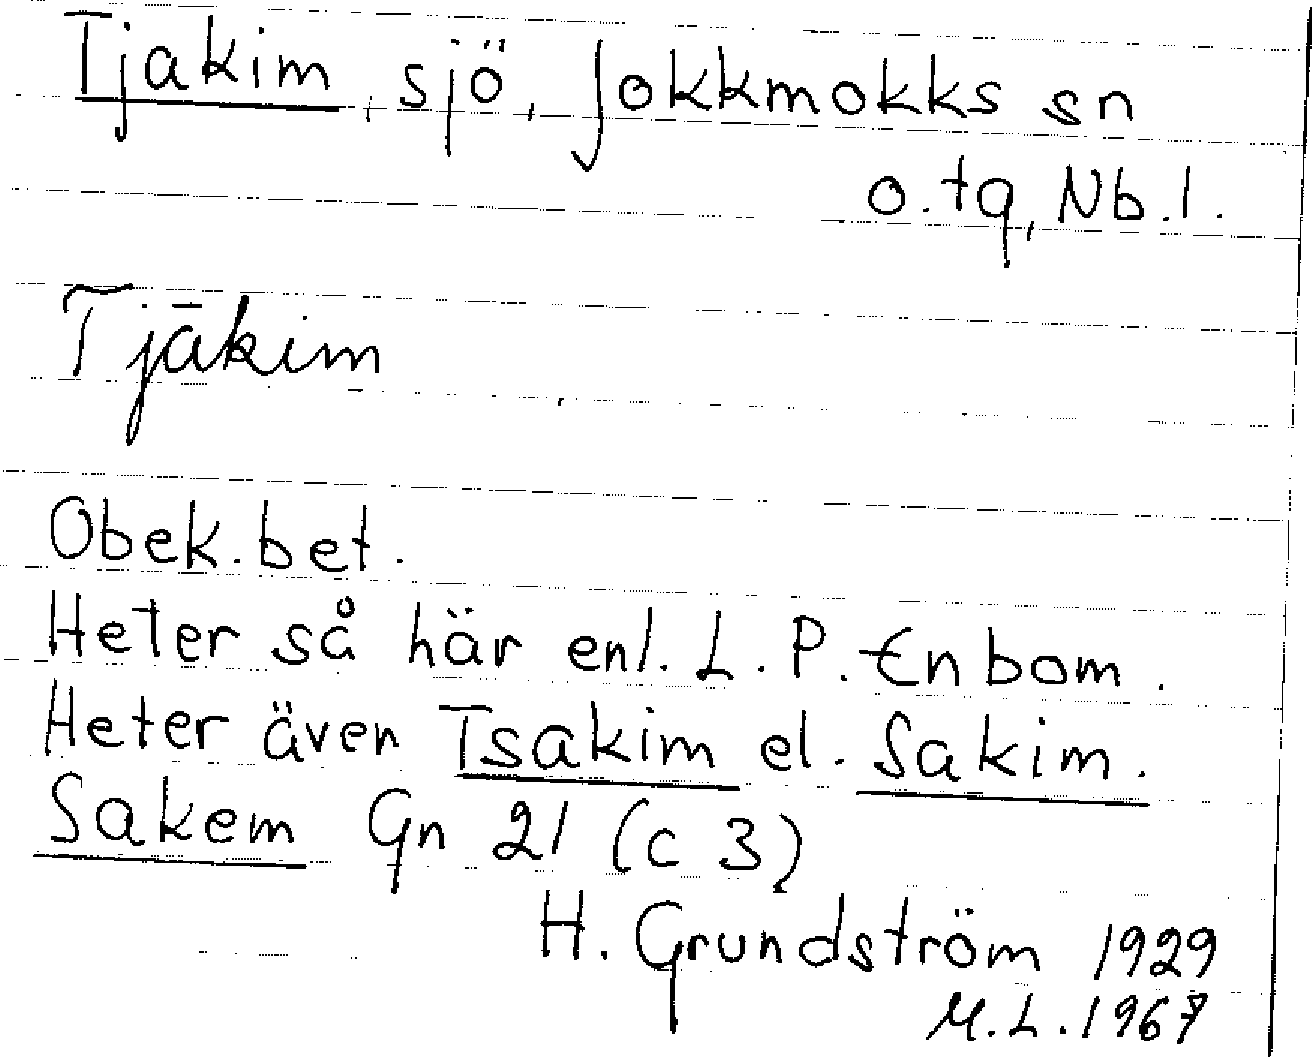 Tjakim, sjö, Jokkmokks sn
o. tg, Nb. l.
Tjākim
Obek. bet.
Heter så här enl. L. P. Enbom.
Heter även Tsakim el. Sakim.
Sakem Gn 21 (c 3)
H. Grundström 1929
M. L. 1967